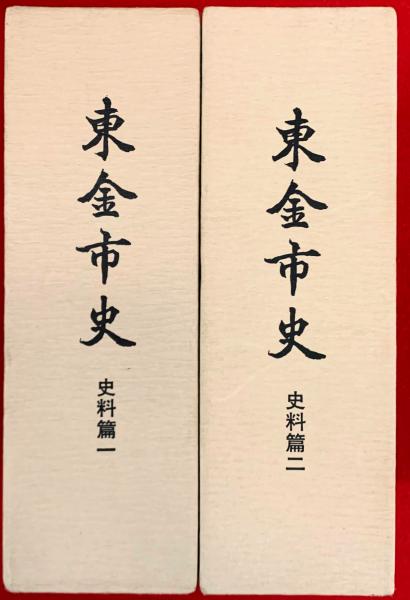 東金市史
史料篇一
東金市史
史料篇二